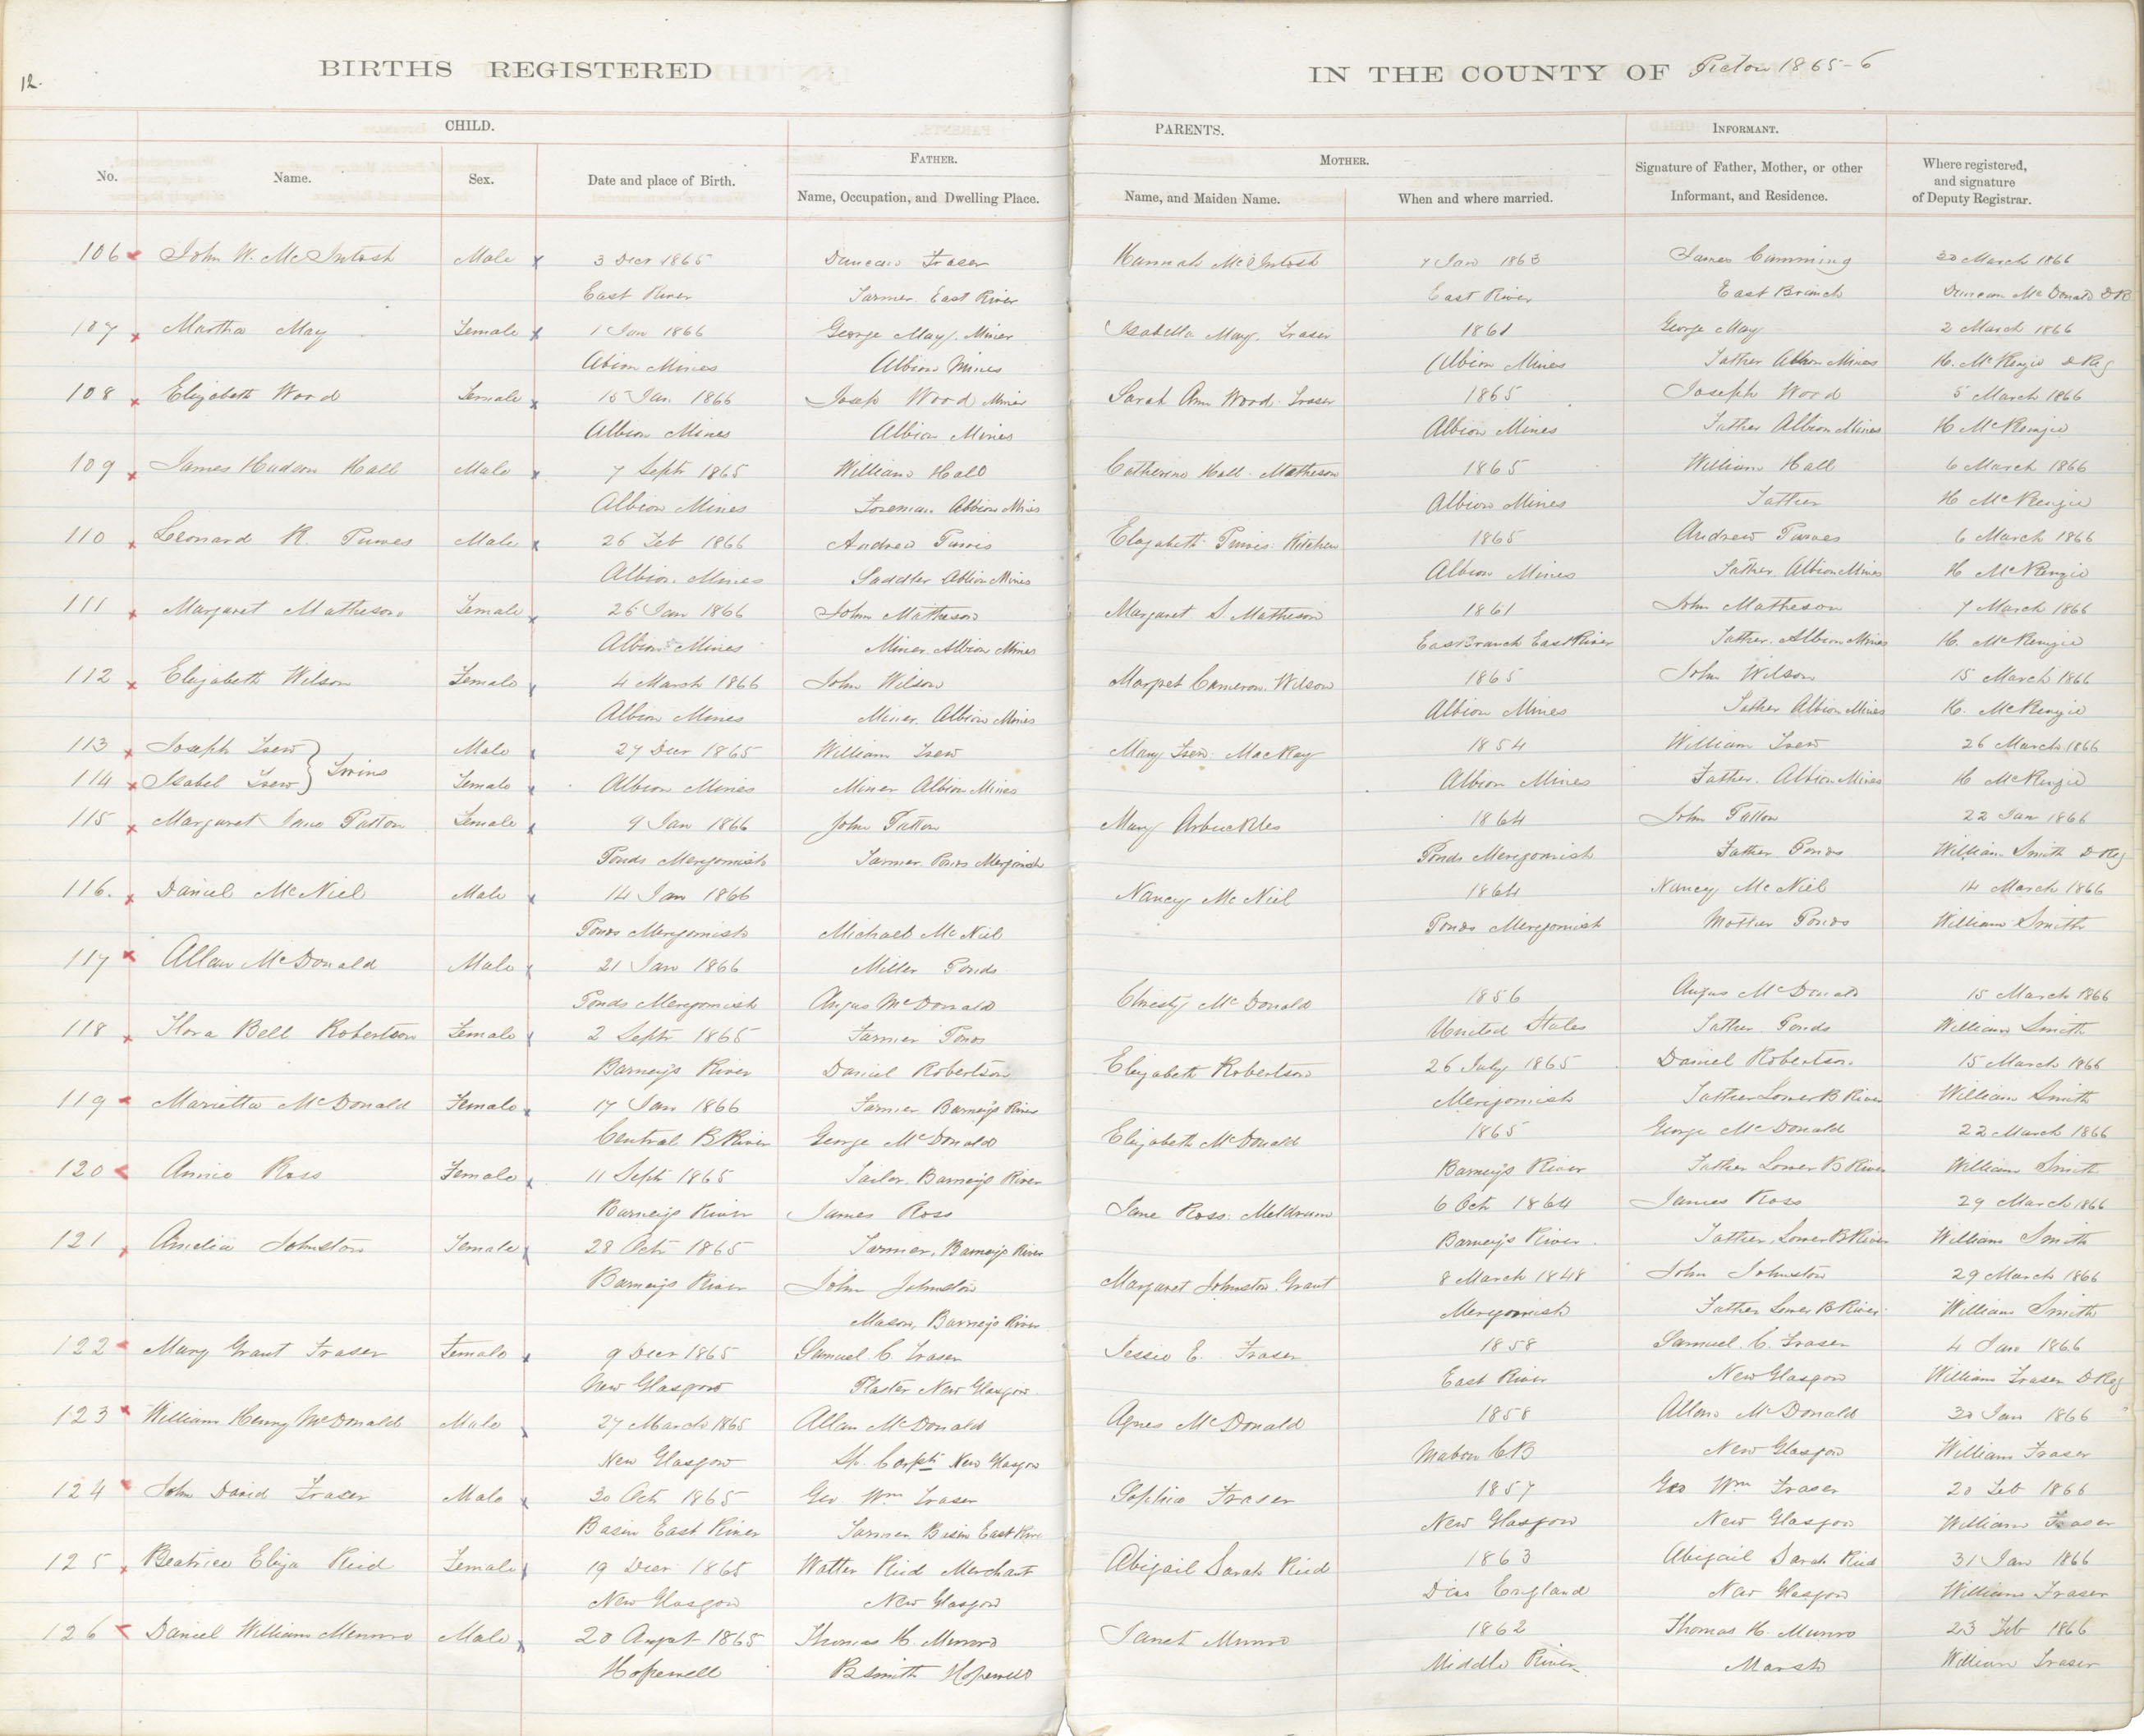 12.
BIRTHS REGISTERED IN THE COUNTY OF Pictou 1865-6
CHILD. PARENTS. INFORMANT.
No. Name. Sex. Date and place of Birth. FATHER. MOTHER.
Name, Occupation, and Dwelling Place. Name, and Maiden Name. When and where married. Signature of Father, Mother, or other Informant, and Residence. Where registered, and signature of Deputy Registrar.
106 John W. McIntosh Male 3 Decr 1865 Duncan Fraser Hannah McIntosh 7 Jan 1863 James Cumming 30 March 1866
East River Farmer. East River East River East Branch Duncan McDonald DR
107 Martha May Female 1 Jan 1866 George May. Miner Isabella May. Fraser 1861 George May 2 March 1866
Abion Mines Albion Mines Albion Mines Father Albion Mines H. McKenzie D Reg
108 Elizabeth Wood Female 15 Jan 1866 Josep Wood Miner Sarah Ann Wood. Fraser 1865 Joseph Wood 5 March 1866
Albion Mines Albion Mines Albion Mines Father Albion Mines H McKenzie
109 James Hudson Hall Male 7 Sept 1865 William Hall Catherine Hall Matheson 1865 William Hall 6 March 1866
Albion Mines Foreman Albion Mines Albion Mines Father H McKenzie
110 Leonard R. Purves Male 26 Feb 1866 Andrew Purvis Elizabeth Purvis Kitchen 1865 Andrew Purves 6 March 1866
Albion Mines Saddler Albion Mines Albion Mines Father Albion Mines H McKenzie
111 Margaret Matheson Female 26 Jan 1866 John Matheson Margaret S Matheson 1861 John Matheson 7 March 1866
Albion Mines Miner. Albion Mines East Branch East River Father. Albion Mines H. McKenzie
112 Elizabeth Wilson Female 4 March 1866 John Wilson Margret Cameron. Wilson 1865 John Wilson 15 March 1866
Albion Mines Miner. Albion Mines Albion Mines Father Albion Mines H. McKenzie
113 Joseph Trew } Twins Male 27 Decr 1865 William Trew Mary Trew MacKay 1854 William Trew 26 March 1866
114 Isabel Trew Female Albion Mines Miner Albion Mines Albion Mines Father. Albion Mines H McKenzie
115 Margaret Jane Patton Female 9 Jan 1866 John Patton Mary Arbuckles 1864 John Patton 22 Jan 1866
Ponds Merigomish Farmer. Ponds Merigomish Ponds Merigomish Father Ponds William Smith D Reg
116. Daniel McNiel Male 14 Jan 1866 Nancy McNiel 1864 Nancy McNiel 14 March 1866
Ponds Merigomish Michael McNiel Ponds Merigomish Mother Ponds William Smith
117 Allan McDonald Male 21 Jan 1866 Miller Ponds
Ponds Merigomish Angus McDonald Christy McDonald 1856 Angus McDonald 15 March 1866
118 Flora Bell Robertson Female 2 Sept 1865 Farmer Ponds United States Father Ponds William Smith
Barneys River Daniel Robertson Elizabeth Robertson 26 July 1865 Daniel Robertson 15 March 1866
119 Marietta McDonald Female 17 Jan 1866 Farmer Barneys River Merigomish Father Lower B River William Smith
Central B River George McDonald Elizabeth McDonald 1865 George McDonald 22 March 1866
120 Annie Ross Female 11 Sept 1865 Tailor. Barneys River Barneys River Father Lower B River William Smith
Barneys River James Ross Jane Ross. Meldrum 6 Oct 1864 James Ross 29 March 1866
121 Amelia Johnston Female 28 Oct 1865 Farmer, Barneys River Barneys River Father, Lower B River William Smith
Barneys River John Johnston Margaret Johnston. Grant 8 March 1848 John Johnston 29 March 1866
Mason, Barneys River Merigomish Father Lower B River William Smith
122 Mary Grant Fraser Female 9 Decr 1865 Samuel C Fraser Jessie E. Fraser 1858 Samuel. C. Fraser 4 Jan 1866
New Glasgow Plaster New Glasgow East River New Glasgow William Fraser D Reg
123 William Henry McDonald Male 27 March 1865 Allan McDonald Agnes McDonald 1858 Allan McDonald 30 Jan 1866
New Glasgow Sh. Carpt New Glasgow Mabou CB New Glasgow William Fraser
124 John David Fraser Male 30 Oct 1865 Geo. Wm Fraser Sophia Fraser 1857 Geo Wm Fraser 20 Feb 1866
Basin East River Farmer Basin East River New Glasgow New Glasgow William Fraser
125 Beatrice Eliza Reid Female 19 Decr 1865 Walter Reid Merchant Abigail Sarah Reid 1863 Abigail Sarah Reid 31 Jan 1866
New Glasgow New Glasgow Diss England New Glasgow William Fraser
126 Daniel William Munro Male 20 August 1865 Thomas H. Munro Janet Munro 1862 Thomas H. Munro 23 Feb 1866
Hopewell B smith Hopewell Middle River Marsh William Fraser